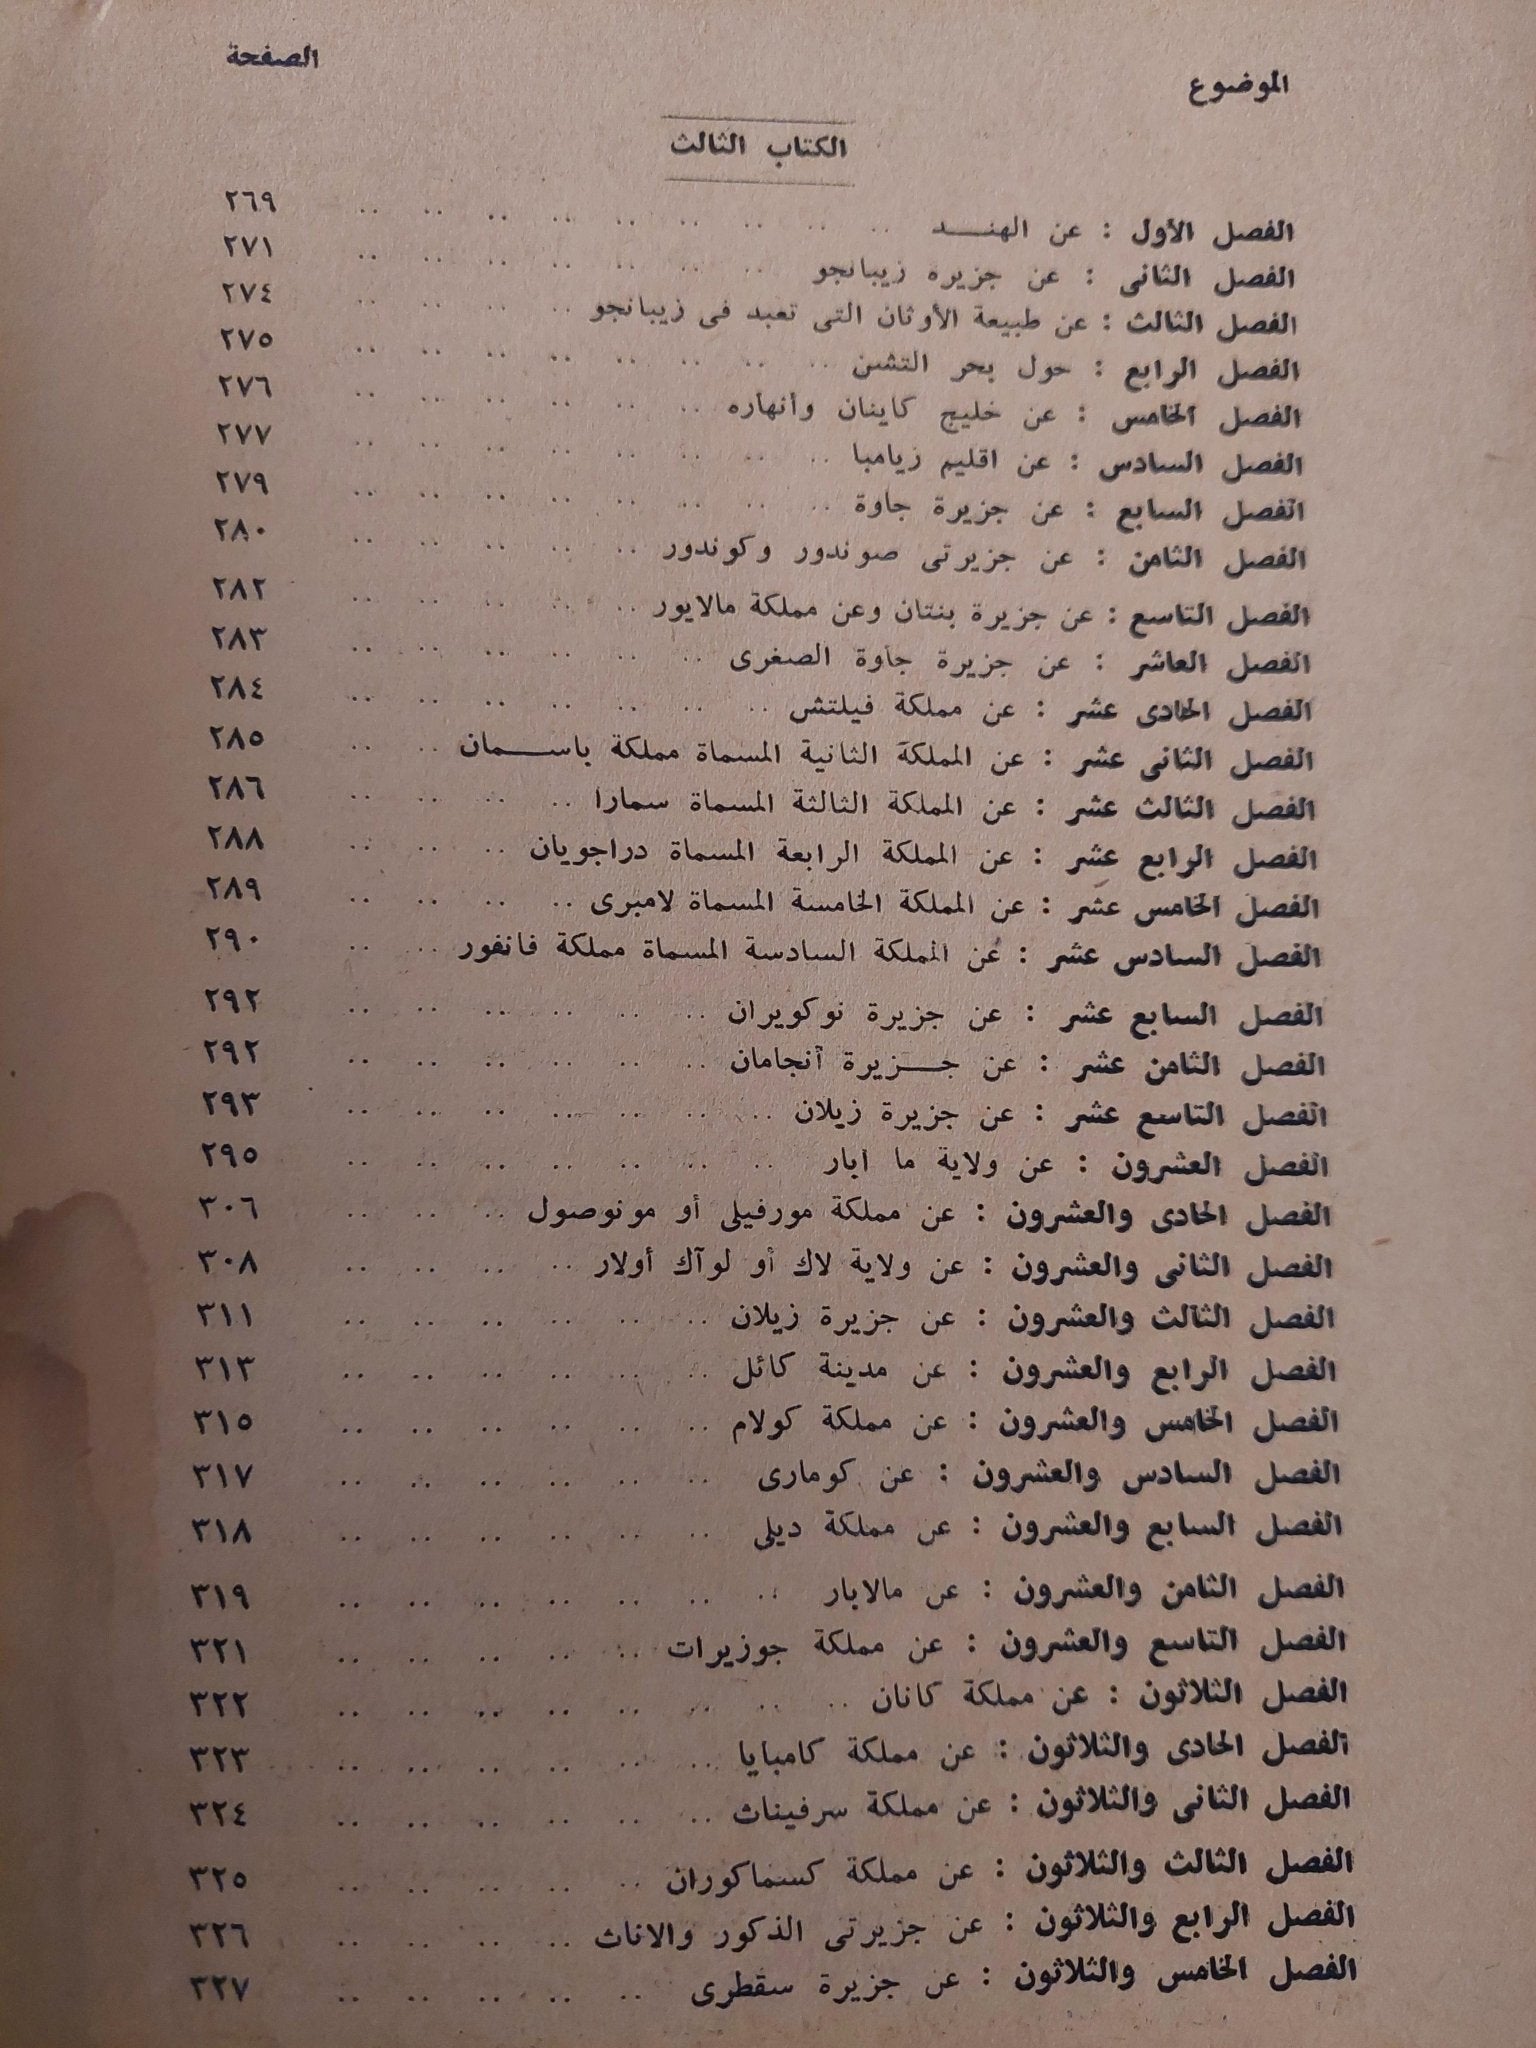 الموضوع الصفحة
الكتاب الثالث
الفصل الأول : عن الهنـــد .. .. .. .. .. .. .. .. .. ٢٦٩
الفصل الثانى : عن جزيرة زيبانجو .. .. .. .. .. .. .. ٢٧١
الفصل الثالث : عن طبيعة الأوثان التى تعبد فى زيبانجو .. .. .. .. ٢٧٤
الفصل الرابع : حول بحر التشن .. .. .. .. .. .. .. .. ٢٧٥
الفصل الخامس : عن خليج كاينان وأنهاره .. .. .. .. .. .. ٢٧٦
الفصل السادس : عن اقليم زيامبا .. .. .. .. .. .. .. .. ٢٧٧
الفصل السابع : عن جزيرة جاوة .. .. .. .. .. .. .. .. ٢٧٩
الفصل الثامن : عن جزيرتى صوندور وكوندور .. .. .. .. .. ٢٨٠
الفصل التاسع : عن جزيرة بنتان وعن مملكة مالايور .. .. .. .. .. ٢٨٢
الفصل العاشر : عن جزيرة جاوة الصغرى .. .. .. .. .. .. ٢٨٣
الفصل الحادى عشر : عن مملكة فيلتش .. .. .. .. .. .. .. ٢٨٤
الفصل الثانى عشر : عن المملكة الثانية المسماة مملكة باســـمان .. .. ٢٨٥
الفصل الثالث عشر : عن المملكة الثالثة المسماة سمارا .. .. .. .. ٢٨٦
الفصل الرابع عشر : عن المملكة الرابعة المسماة دراجويان .. .. .. ٢٨٨
الفصل الخامس عشر : عن المملكة الخامسة المسماة لامبرى .. .. .. .. ٢٨٩
الفصل السادس عشر : عن المملكة السادسة المسماة مملكة فانفور .. .. ٢٩٠
الفصل السابع عشر : عن جزيرة نوكويران .. .. .. .. .. .. ٢٩٢
الفصل الثامن عشر : عن جـــزيرة أنجامان .. .. .. .. .. .. ٢٩٢
الفصل التاسع عشر : عن جزيرة زيلان .. .. .. .. .. .. .. ٢٩٣
الفصل العشرون : عن ولاية ما ابار .. .. .. .. .. .. .. ٢٩٥
الفصل الحادى والعشرون : عن مملكة مورفيلى أو مونوصول .. .. .. ٣٠٦
الفصل الثانى والعشرون : عن ولاية لاك أو لوآك أولار .. .. .. .. ٣٠٨
الفصل الثالث والعشرون : عن جزيرة زيلان .. .. .. .. .. .. ٣١١
الفصل الرابع والعشرون : عن مدينة كائل .. .. .. .. .. .. ٣١٣
الفصل الخامس والعشرون : عن مملكة كولام .. .. .. .. .. .. ٣١٥
الفصل السادس والعشرون : عن كومارى .. .. .. .. .. .. ٣١٧
الفصل السابع والعشرون : عن مملكة ديلى .. .. .. .. .. .. ٣١٨
الفصل الثامن والعشرون : عن مالابار .. .. .. .. .. .. .. ٣١٩
الفصل التاسع والعشرون : عن مملكة جوزيرات .. .. .. .. .. ٣٢١
الفصل الثلاثون : عن مملكة كانان .. .. .. .. .. .. .. .. ٣٢٢
الفصل الحادى والثلاثون : عن مملكة كامبايا .. .. .. .. .. .. ٣٢٣
الفصل الثانى والثلاثون : عن مملكة سرفيناث .. .. .. .. .. .. ٣٢٤
الفصل الثالث والثلاثون : عن مملكة كسماكوران .. .. .. .. .. ٣٢٥
الفصل الرابع والثلاثون : عن جزيرتى الذكور والاناث .. .. .. .. ٣٢٦
الفصل الخامس والثلاثون : عن جزيرة سقطرى .. .. .. .. .. ٣٢٧